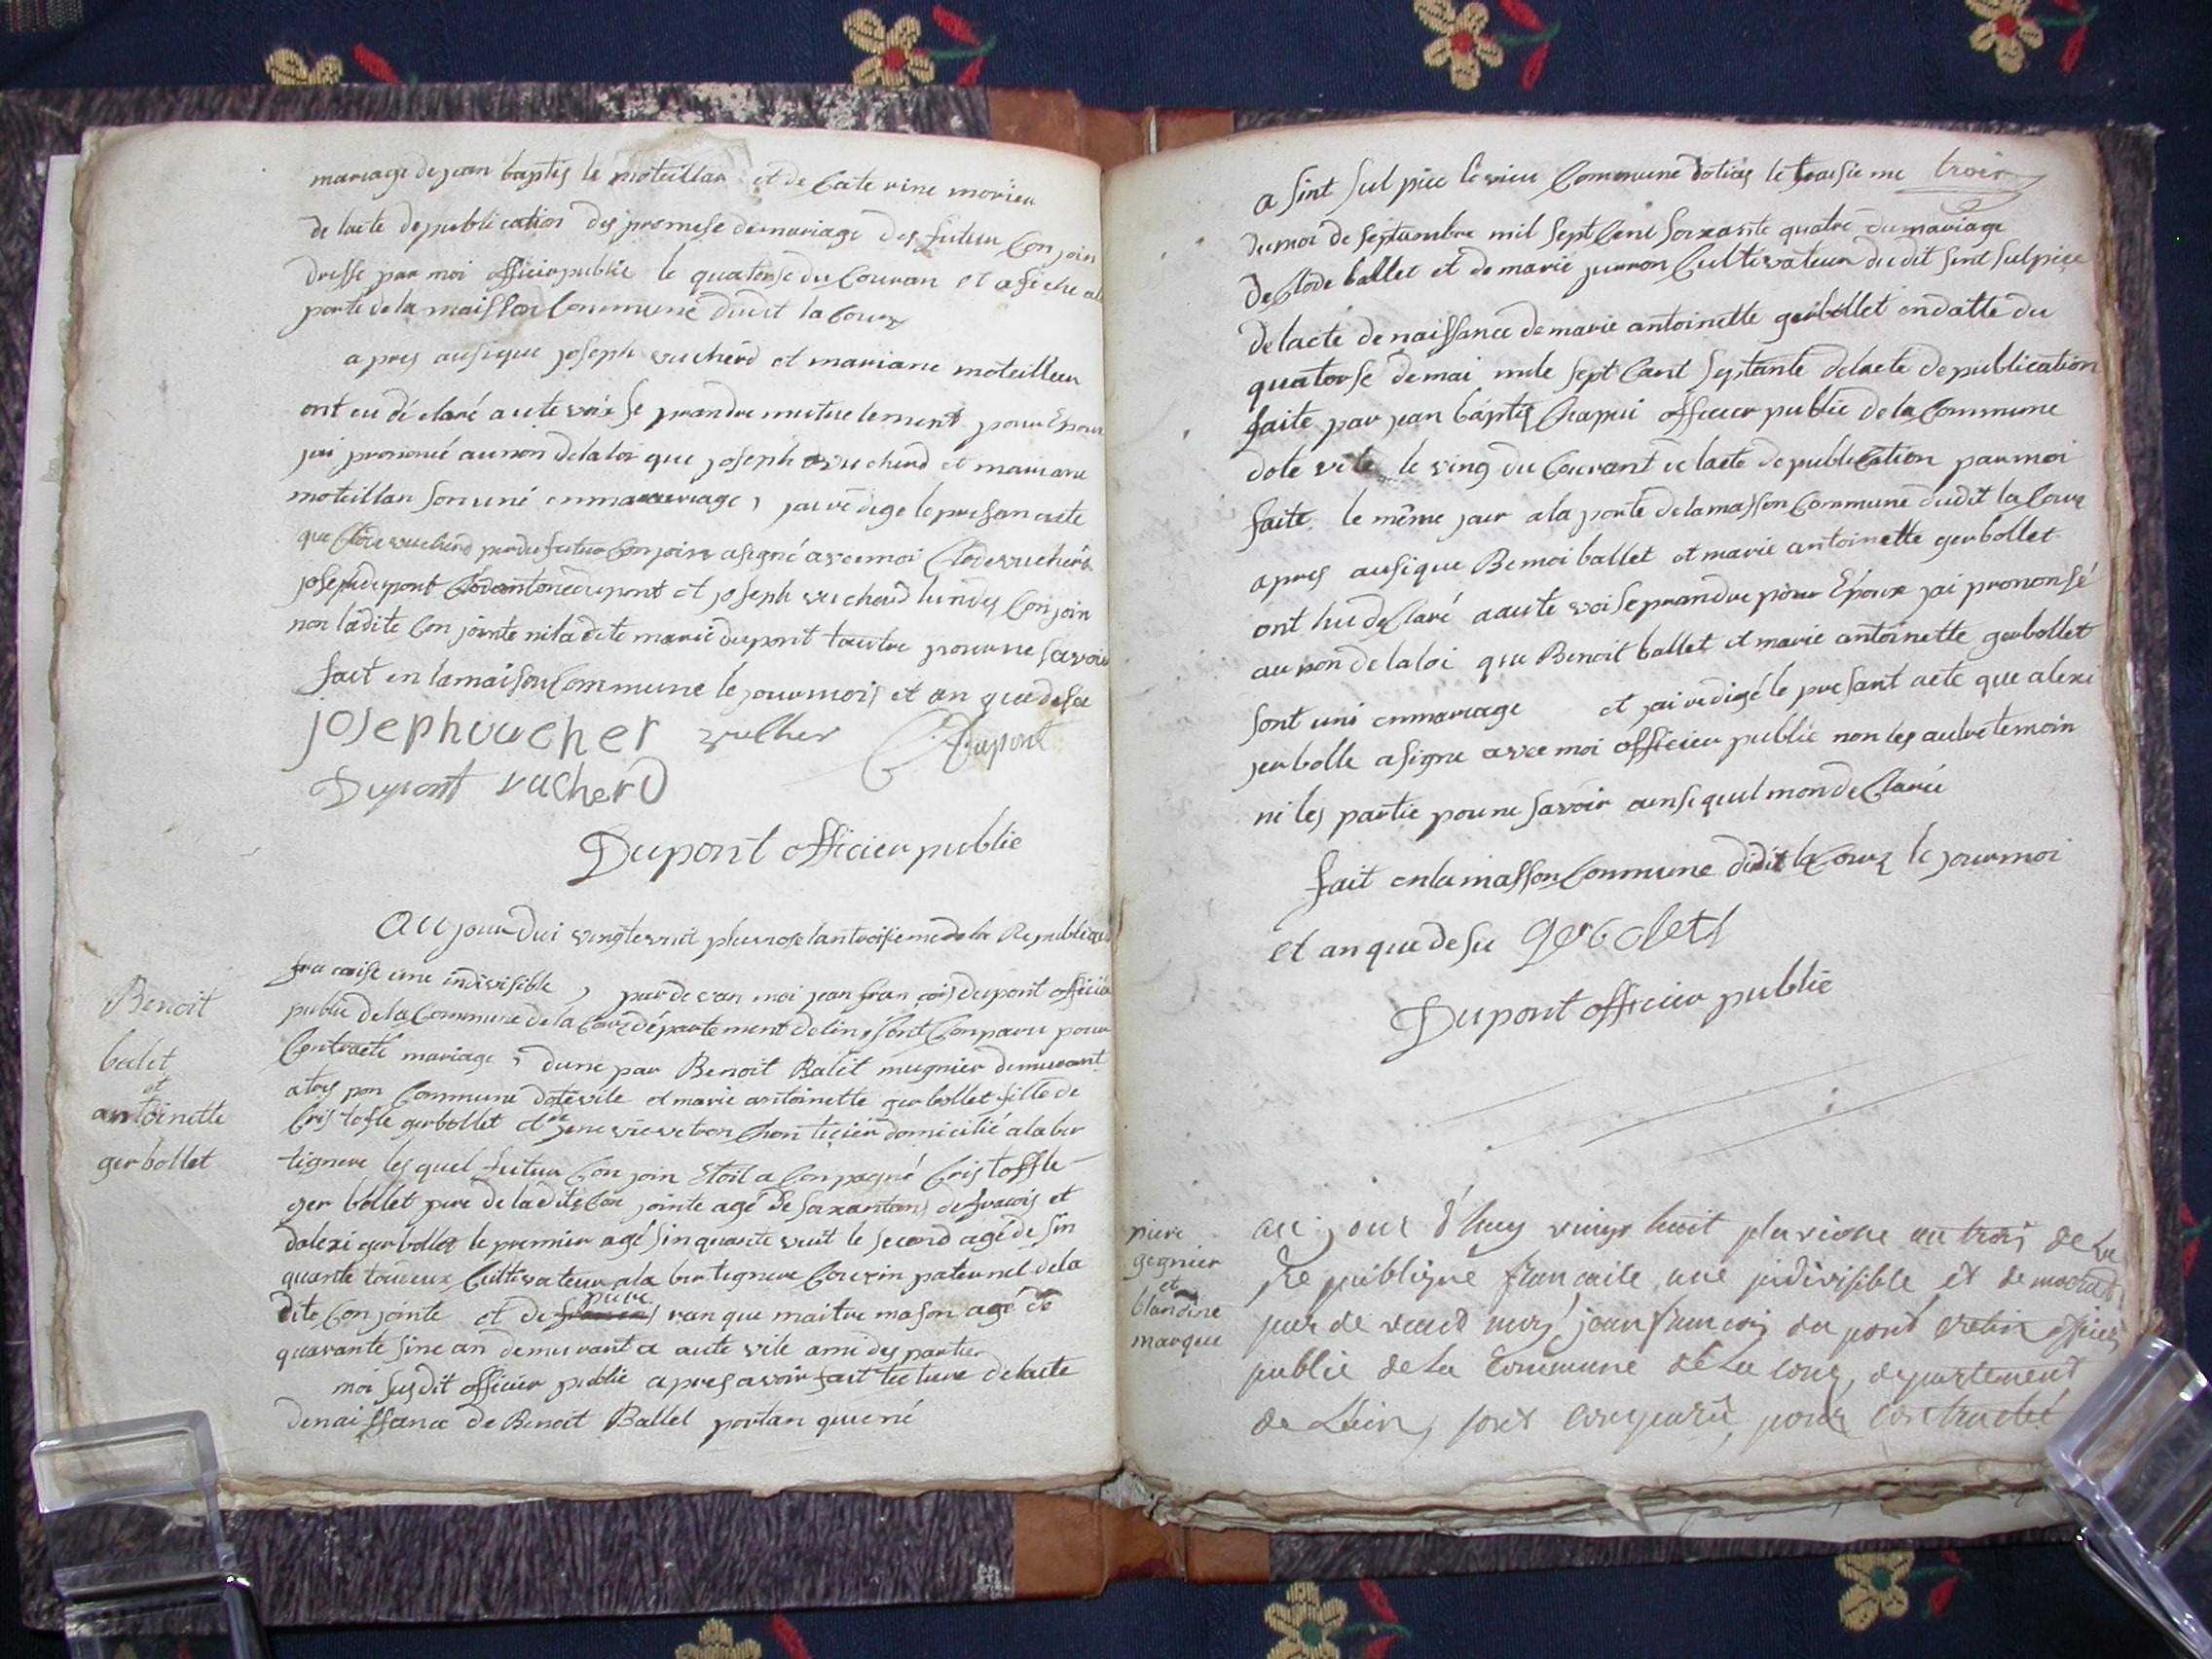 mariage de jean baptis le moteillar et de Cate rine morieu
de lacte de publication des promese de mariage des futur Con join
dresse par moi officier publie le quatorse du Couran et afiche a la
porte de la maisson Commune dudit la Coux
apres ausi que joseph vucherd et mariane moteillan
ont eu dé claré aute voix se prandre mutuelement pour Epoux
jai prononcé au non de la loi que joseph vucherd et mariane
moteillan son uné en mariage, jai rédige le presan acte
que Clode vucherd per du futur Conjoin a signé avec moi Clode vucherd
joseph dupont Clod antone dupont et joseph vucherd lun des Conjoin
non ladite Con jointe ni la dite marie dupont lautre pour ne savoir
fait en la maison Commune le jour mois et an que desu
joseph vucher vucher C Dupont
Dupont vucherD
Dupont officier publie
Au jourdui vingtevuit pluviose lan troisieme de la Republique
fra caise une indivisible, par de van moi jean fran çois dupont officier
publie de la Commune de la Coux département de lin, sont Conparu pour
Contracté mariage, dune par Benoit Balet mugnier demurant
a tres pon Commune dotevile et marie antoinette gerbollet fille de
Cristofle gerbollet et de jene vieve tron Chon tecier domicilié a la ber
tignere les quel futur Con join Etoit a Conpagné Cris toffle
ger bollet pere de la dite Con jointe agé de soixantans de fracois et
dalexi gerbollet le premier agé sinquante vuit le second agé de sin
quante toudeux Cultivateur a la bertignere Couzin paternel de la
dite Con jointe et de piere ran que maitre mason agé de
quarante sinc an demurant a aute vile ami des partie
moi susdit officier publie apres avoir fait lecture de lacte
de naissance de Benoit Ballet portan quiené
Benoit
balet
et
antoinette
gerbollet
a sint sulpice le vieu Commune dotias le troisieme trois
du moi de septambre mil sept Cent soixante quatre du mariage
de Clode ballet et de marie jurron Cultivateur du dit sint sulpice
de lacte de naissance de marie antoinette gerbollet en datte du
quatorse de mai mile sept Cant septante de lacte de publication
faite par jean baptis Chapui officier publie de la Commune
dote vile le ving du Courant de lacte de publication par moi
faite le même jour a la porte de la masson Commune dudit la Coux
apres ausi que Benoi ballet et marie antoinette gerbollet
ont hu de Claré a aute voi se prandre pour Epoux jai prononsé
au non de la loi que Benoit ballet et marie antoinette gerbollet
sont uni en mariage et jai redigé le presant acte que alexi
jerbolle a signe avec moi officier publie non les autre temoin
ni les partie pour ne savoir ansi quil mon de Claré
fait en la masson Commune dudit la Coux le jour moi
et an que desu gerbolets
Dupont officier publie
piere
gognier
et
blandine
marque
au jour d'huy vingt huit pluviose an trois de la
République francaise une indivisible et democrat
par de vand moy jean francois du pont officier
public de la Commune de la coux, departement
de Lain, sont comparu, pour contracté